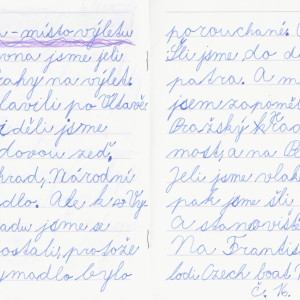 - místo výletu
vna jsme jeli
rahy na výlet.
lavili po Vltavě
iděli jsme
dovou zeď.
hrad, Národní
dlo. Ale k so Vy
adu jsme se
ostali, protože
ymadlo bylo
porouchané.
Šli jsme do do
patra. A m
jsem zapomě
Pražský hrad
most, a na P
Jeli jsme vlak
pak jsme šli
A stanovišt
Na Frantis
lodi Czech boat
Č. K.